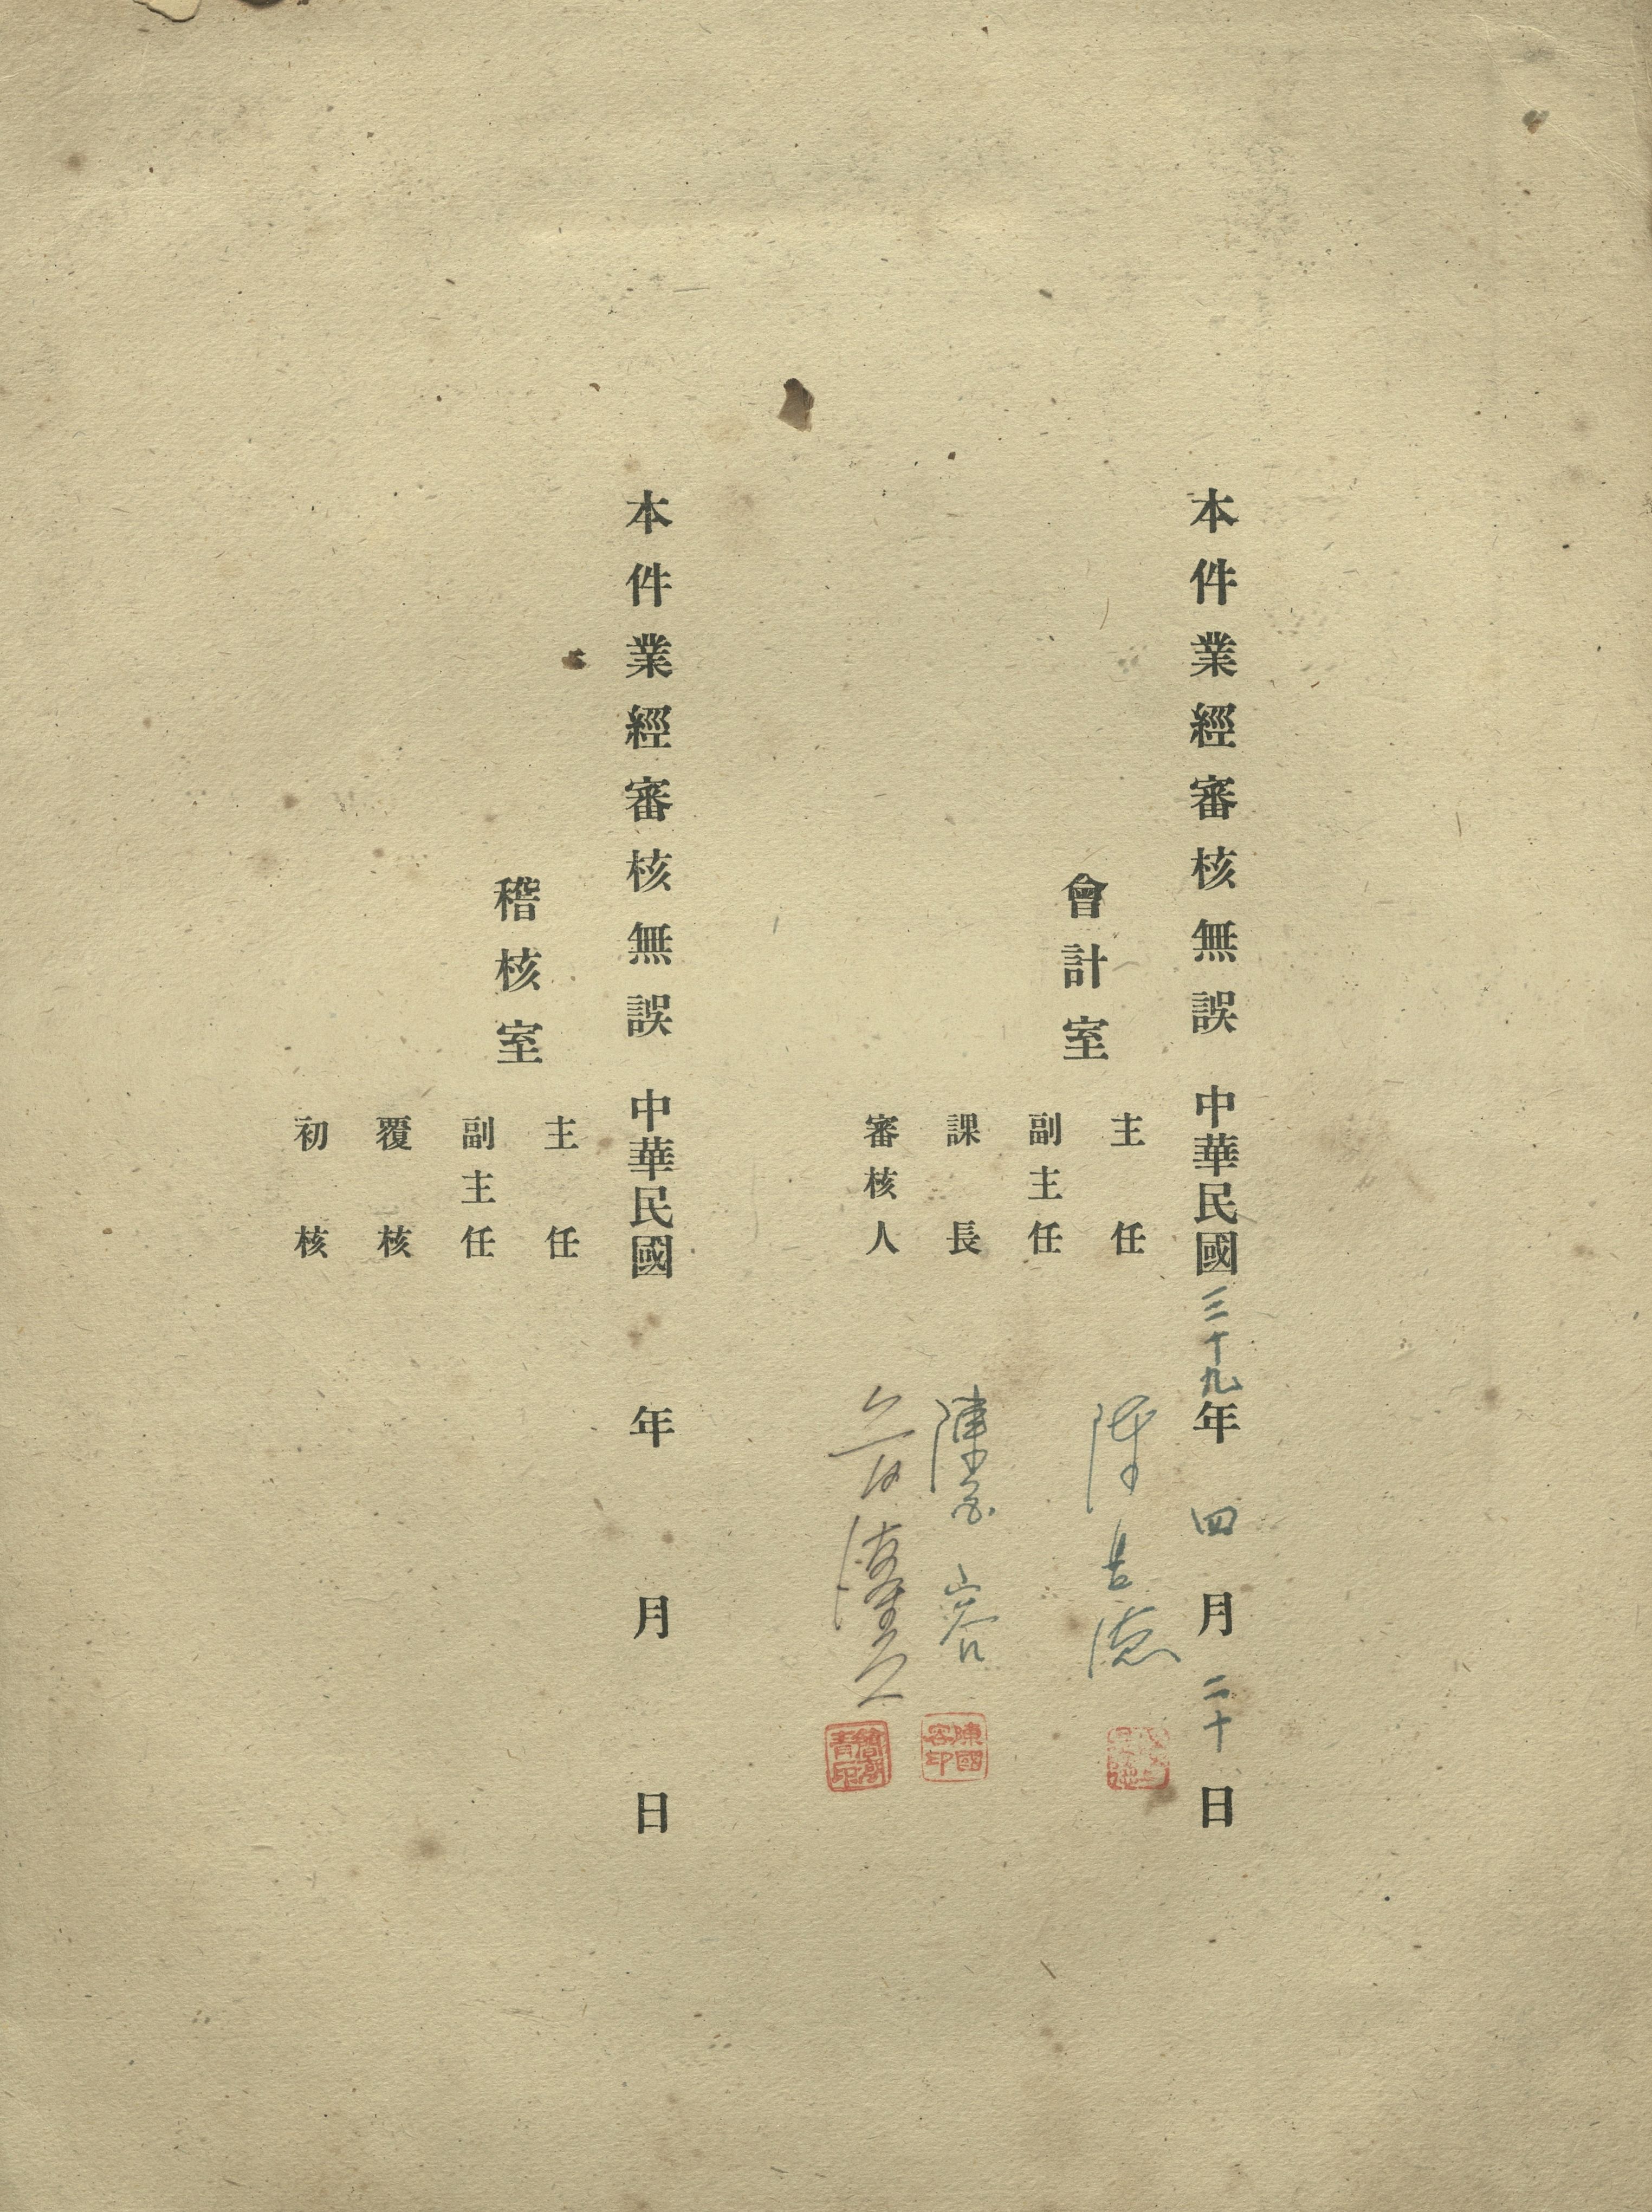 本件業經審核無誤 中華民國三十九年 四 月 二十 日
會計室
主任 陳吉德
副主任
課長 陳國容
審核人
陳國容印
本件業經審核無誤 中華民國 年 月 日
稽核室
主任
副主任
覆核
初核